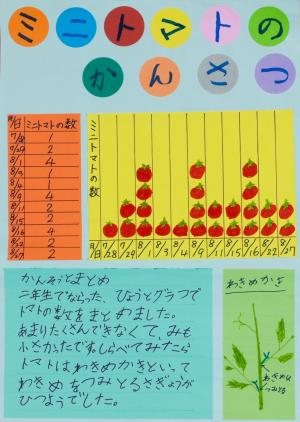 ミニトマトの
かんさつ
月/日 ミニトマトの数
7/28 1
7/29 2
8/1 4
8/3 1
8/4 1
8/9 4
8/12 2
8/15 2
8/16 4
8/22 2
8/27 2
ミニトマトの数
月/日 7/28 7/29 8/1 8/3 8/4 8/9 8/12 8/15 8/16 8/22 8/27
かんそうとまとめ
二年生でならった、ひょうとグラフで
トマトの数をまとめました。
あまりたくさんできなくて、みも
小さかったです。しらべてみたら
トマトはわきめかきといって
わきめをつみとるさぎょうが
ひつようでした。
わきめかき
わきめは
つみとる